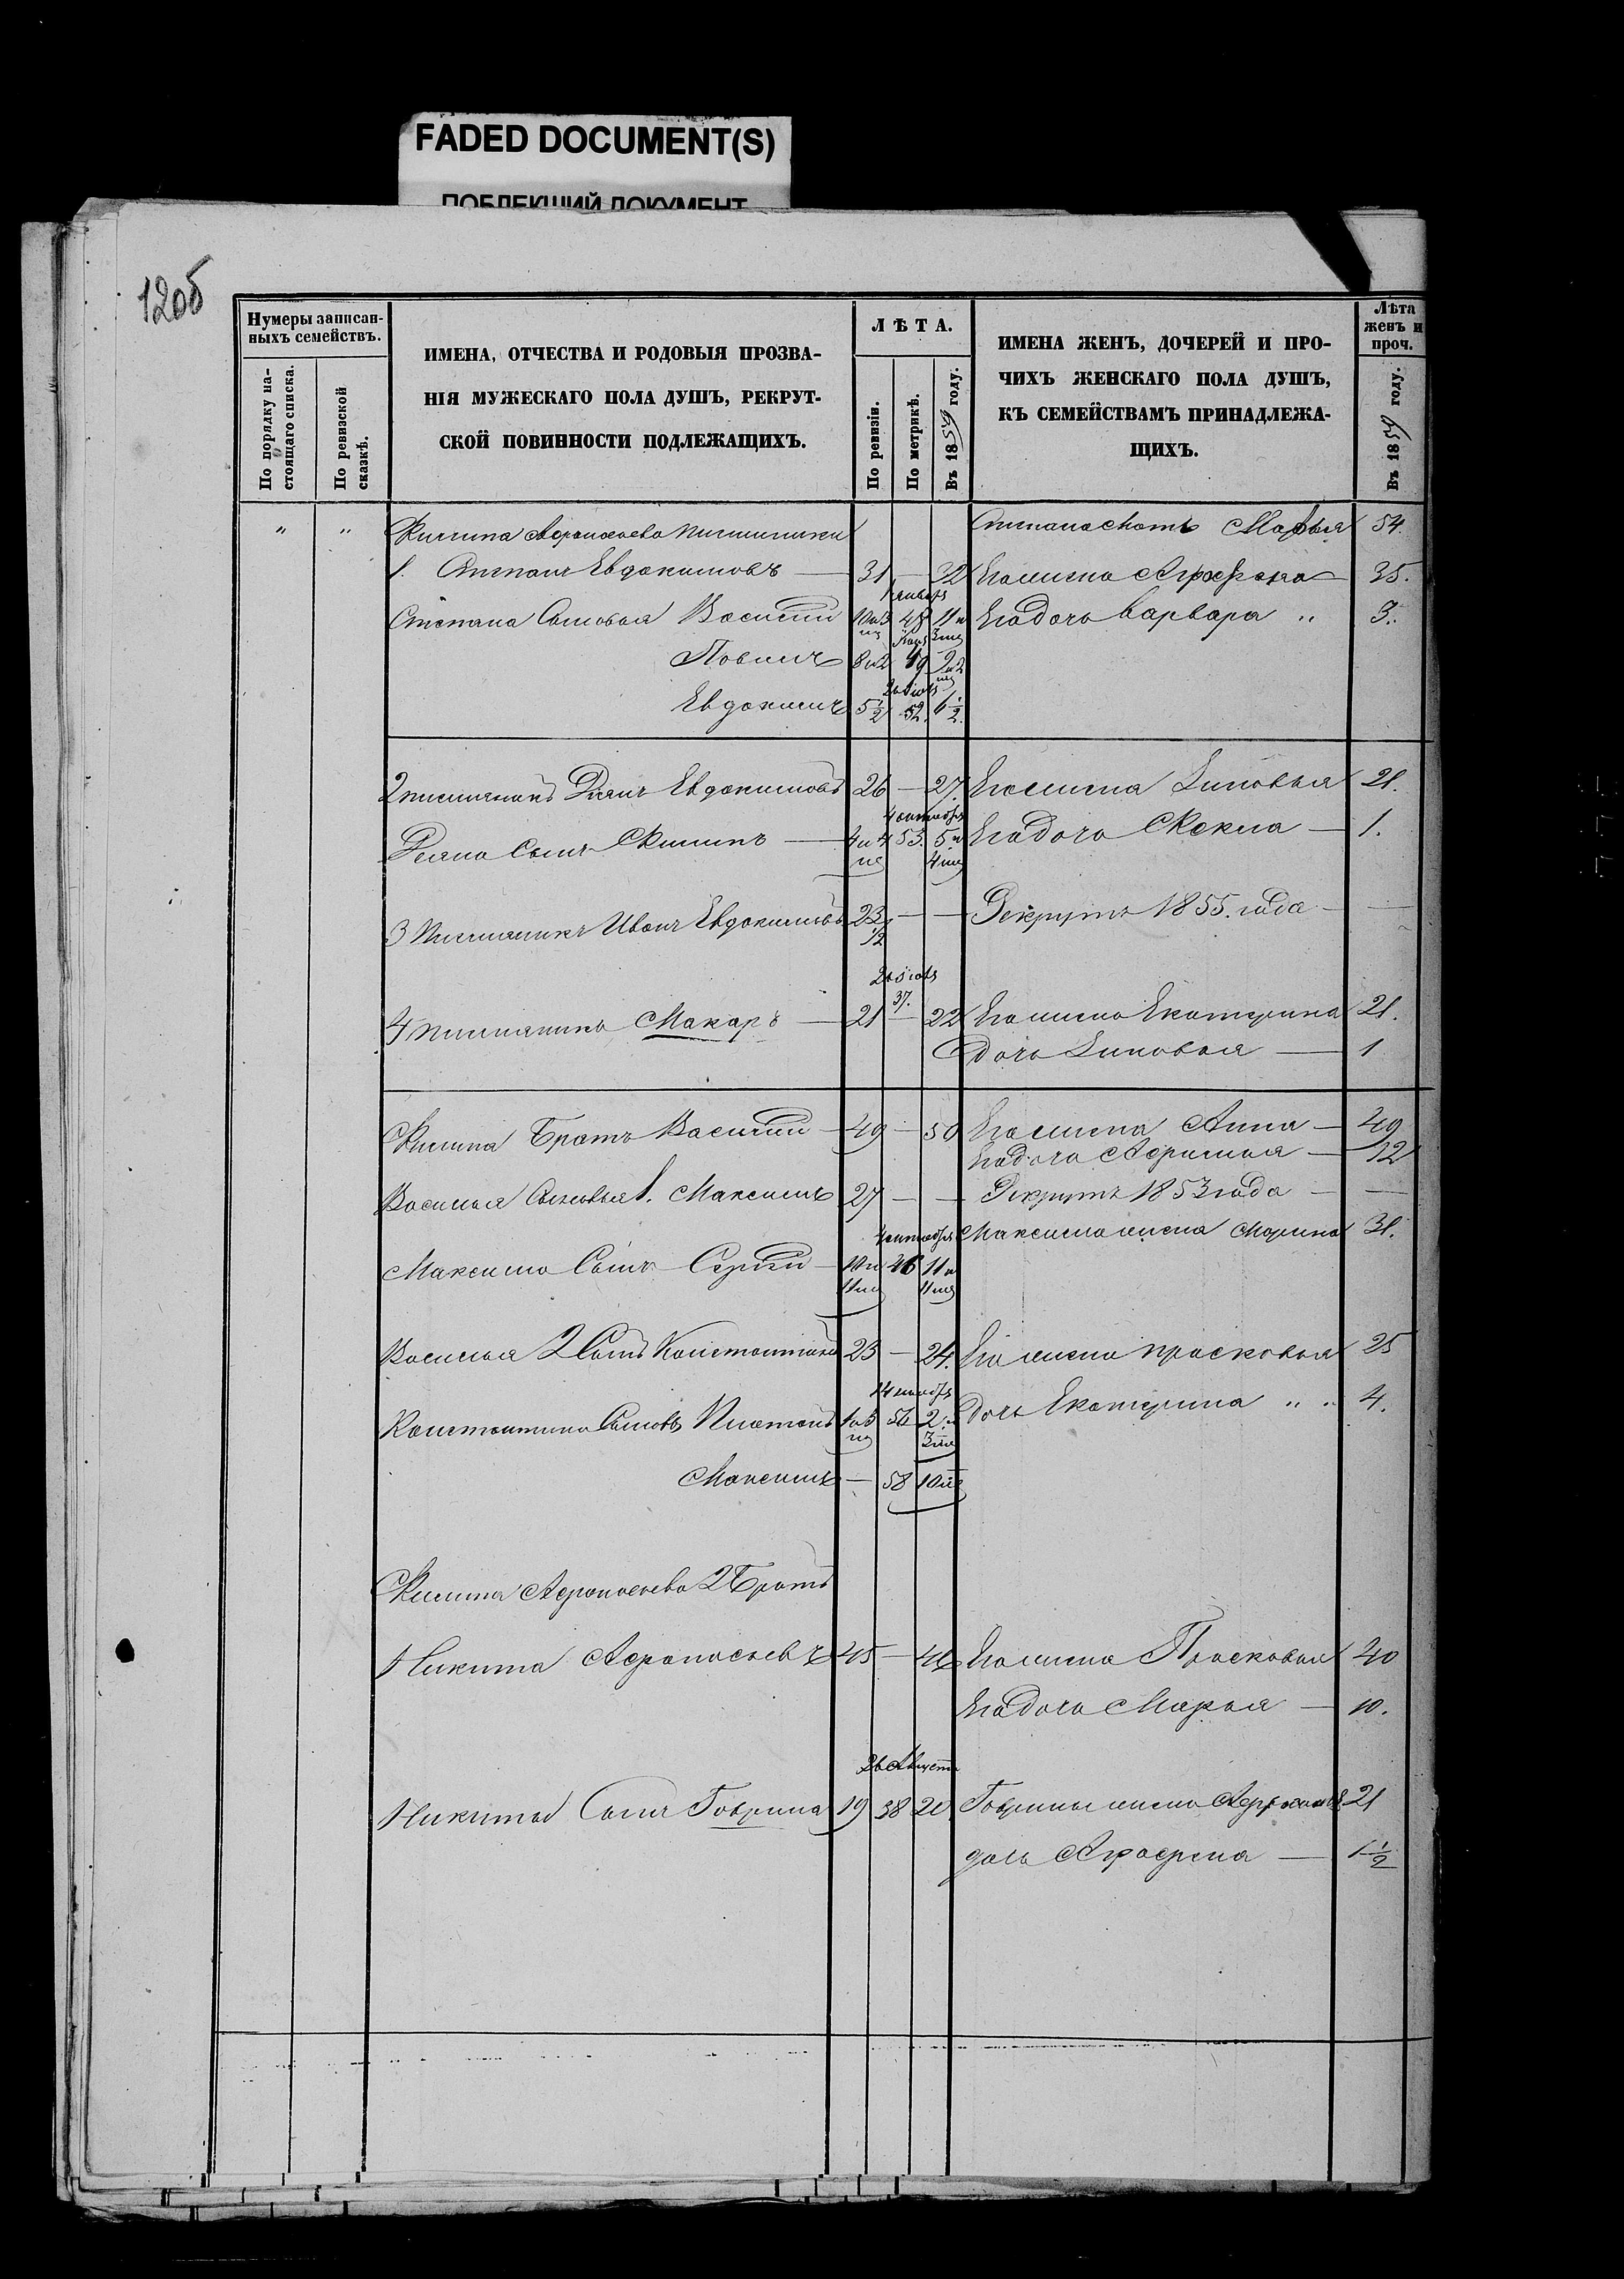 FADED DOCUMENT(S)
ПОБЛЕКШИЙ ДОКУМЕНТ
120б
Нумеры записан-
ныхъ семействъ.
По порядку на-
стоящаго списка.
По ревизской
сказкѣ.
ИМЕНА, ОТЧЕСТВА И РОДОВЫЯ ПРОЗВА-
НІЯ МУЖЕСКАГО ПОЛА ДУШЪ, РЕКРУТ-
СКОЙ ПОВИННОСТИ ПОДЛЕЖАЩИХЪ.
ЛѢТА.
По ревизіи.
По метрикѣ.
Въ 1859 году.
ИМЕНА ЖЕНЪ, ДОЧЕРЕЙ И ПРО-
ЧИХЪ ЖЕНСКАГО ПОЛА ДУШЪ,
КЪ СЕМЕЙСТВАМЪ ПРИНАДЛЕЖА-
ЩИХЪ.
Лѣта
женъ и
проч.
Въ 1859 году.
" " Филипа Афонасьева племяники Степана мать Марья 54.
1. Степанъ Евдокимовъ — 31 — 32 Его жена Агрофена — 35.
Степана Сыновья Василій 10 и 3 мц 1 января 48 11 и 3 мц Его дочь Варвара " 3.
Павелъ 8 и 2 49 9 и 2 мц
Евдокимъ 5½ 52. 6½.
2 племяникъ Евдокимовъ 26 — 27. Его жена Зиновья 21.
Сынъ Филипъ — 4 и 4 мц 4 сентября 53. 5 и 4 мц Его дочь Фекла — 1.
3 Племяникъ Иванъ Евдокимовъ 23½ — — Рекрутъ 1855. года — —
4 племяникъ Макаръ — 21 — 37. 22 Его жена Екатерина 21.
Дочь Зиновья — 1
Филипа Братъ Василій — 49 — 50 Его жена Анна — 49
Его дочь Афимья — 12
Василья Сыновья 1. Максимъ 27 — — Рекрутъ 1853 года — —
Максима жена Марина 31.
Максима Сынъ Сергей — 10 и 11 мц 46 11 и 11 мц
Василья 2 Сынъ Констонтинъ 23 — 24. Его жена Прасковья 25
Констонтина Сыновь Платонъ 1 и 3 мц 56 2 и 3 мц Дочь Екатерина " " 4.
Максимъ — 58 10 мц
Филипа Афонасьева 2 Братъ
Никита Афонасьевъ 45 — 46 Его жена Прасковья 40
Его дочь Марья — 10.
Никиты Сынъ Гаврила 19 26 Августа 38 20. Гаврилы жена 21
дочь Агрофена — 1½